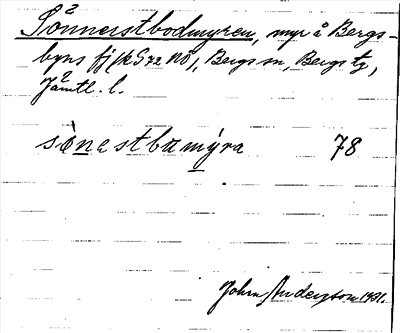 Sönnerstbodmyren, myr å Bergs-
byns fj (k S 72 NÖ), Bergs sn, Bergs tg,
Jämtl. l.
sönestbumýra 78
John Anderson 1931.